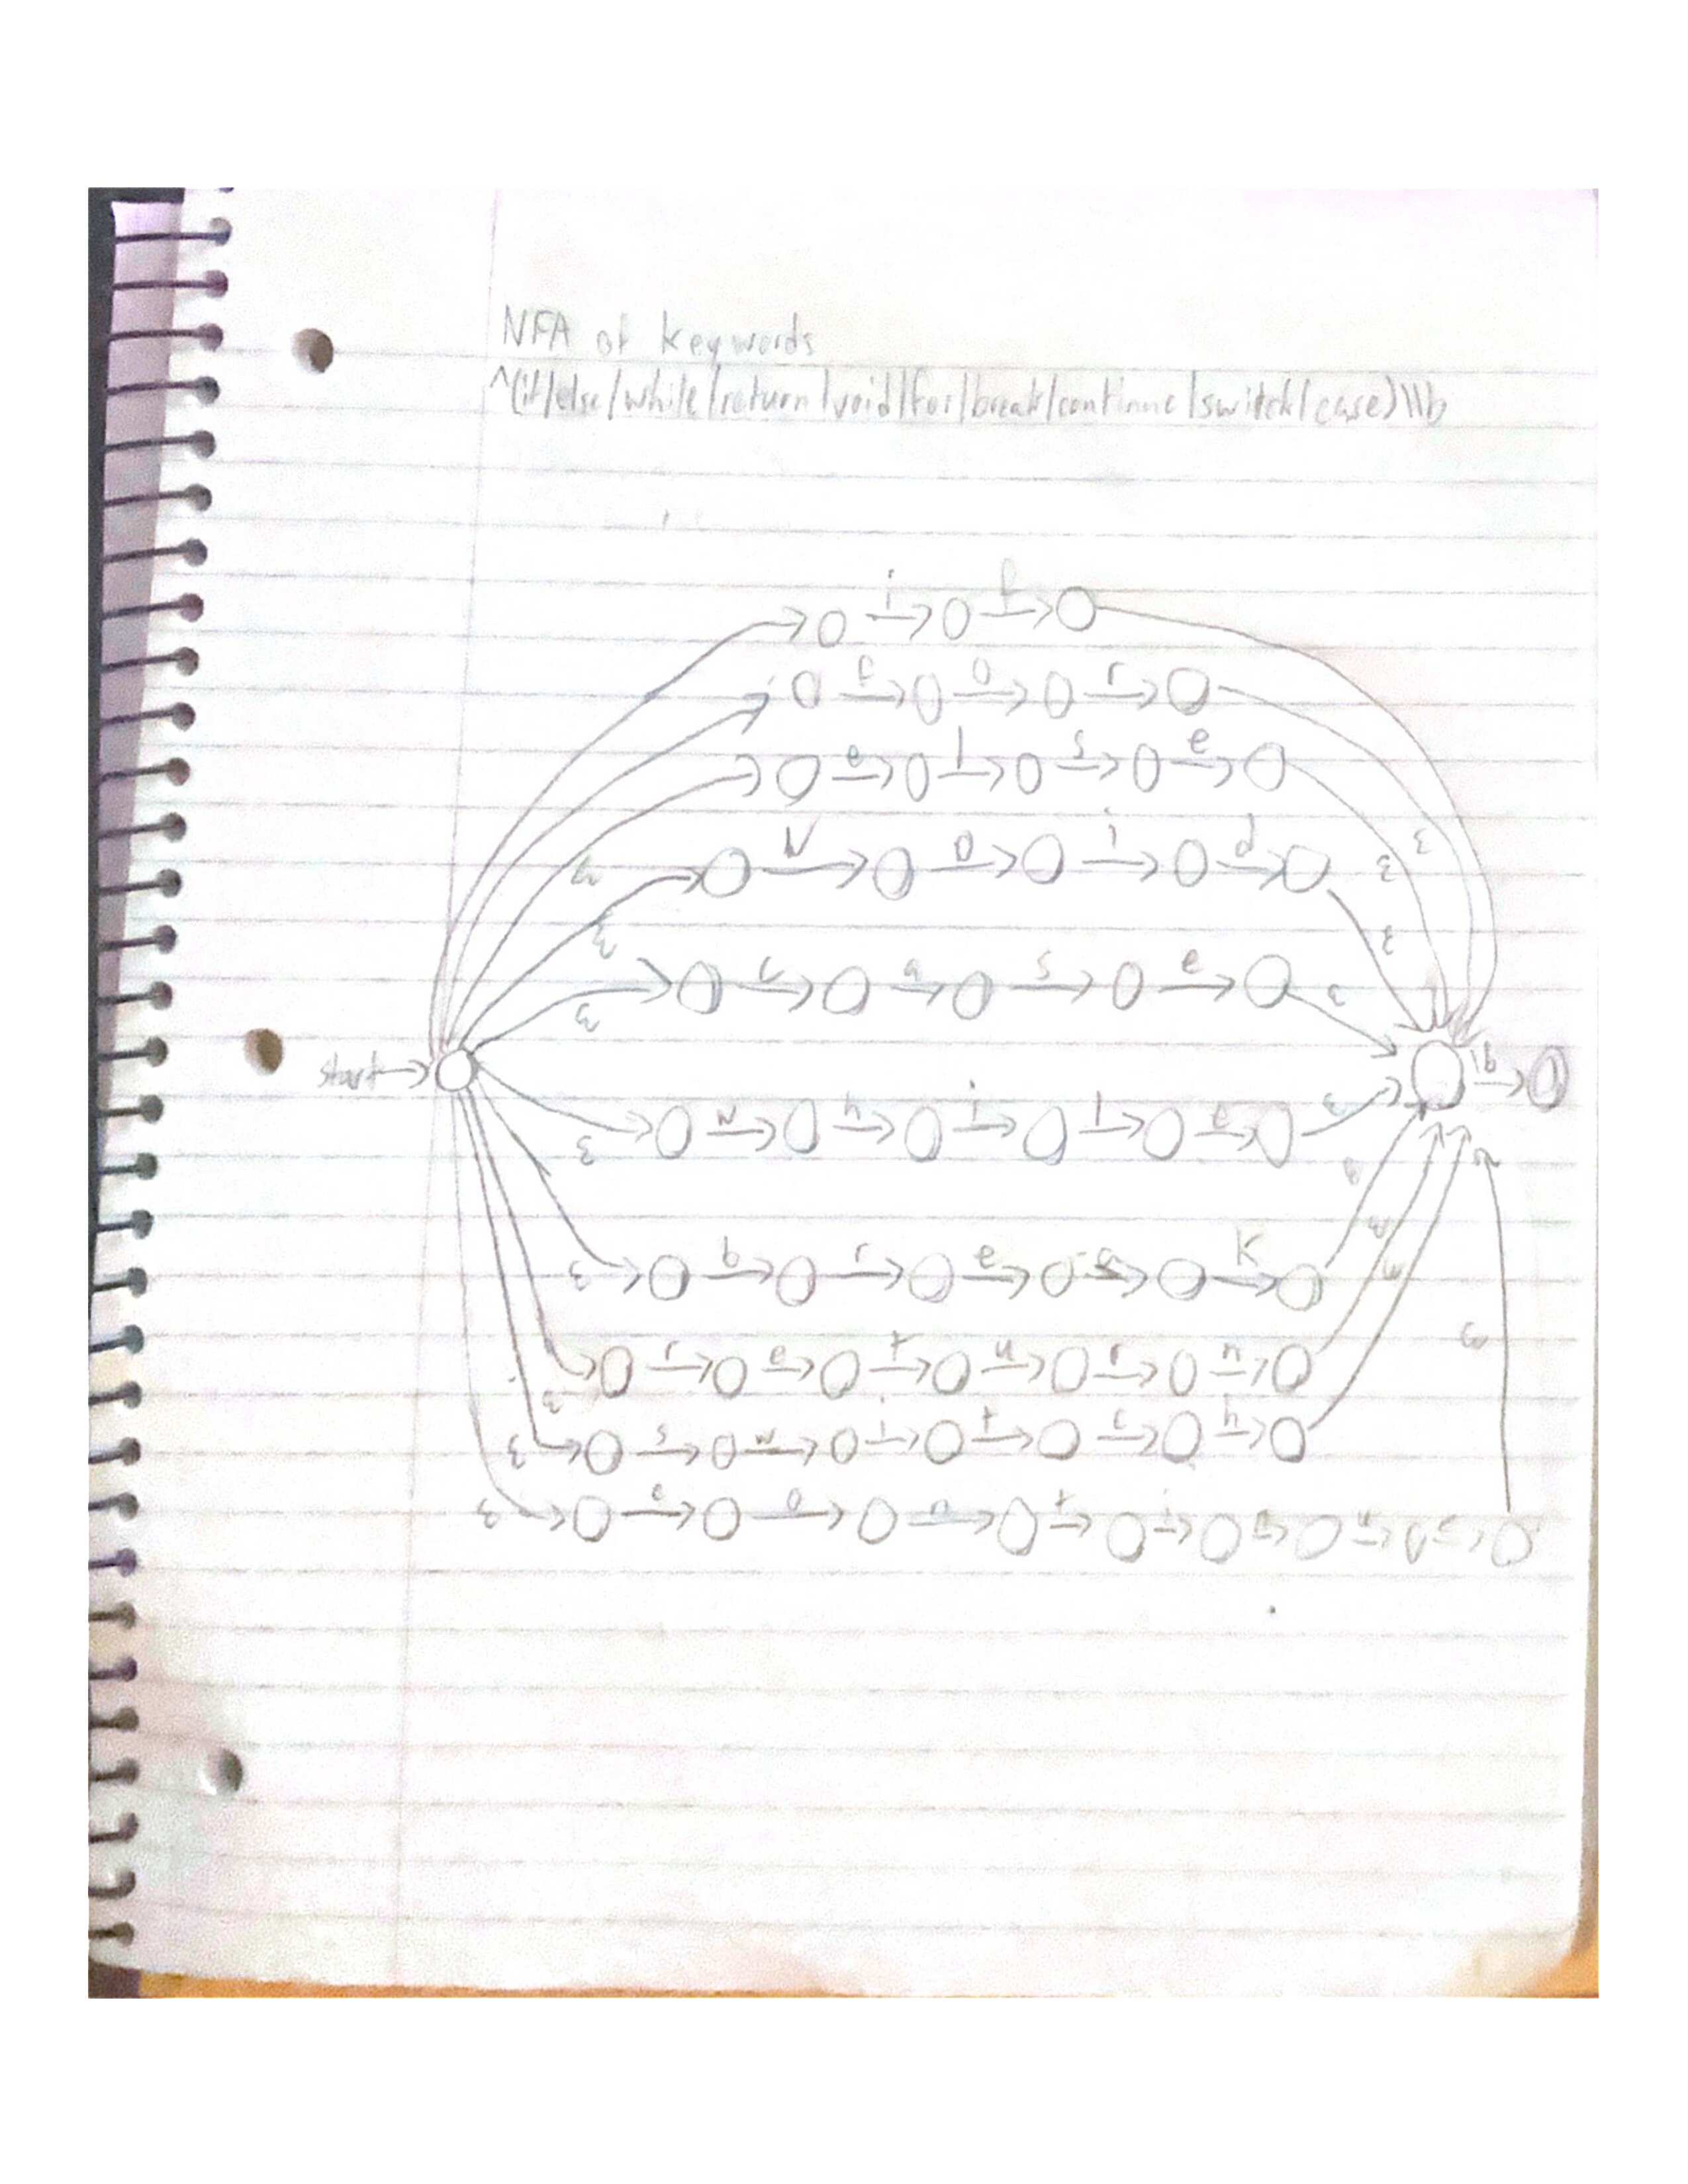 NFA of keywords
^(if/else/while/return|void|for|break/continue|switch|case)\\b
i f
f o r
e l s e
ε v o i d ε
ε c a s e ε
start \b
ε w h i l e ε
ε b r e a k ε
ε r e t u r n ε
ε s w i t c h ε
ε c o n t i n u e ε